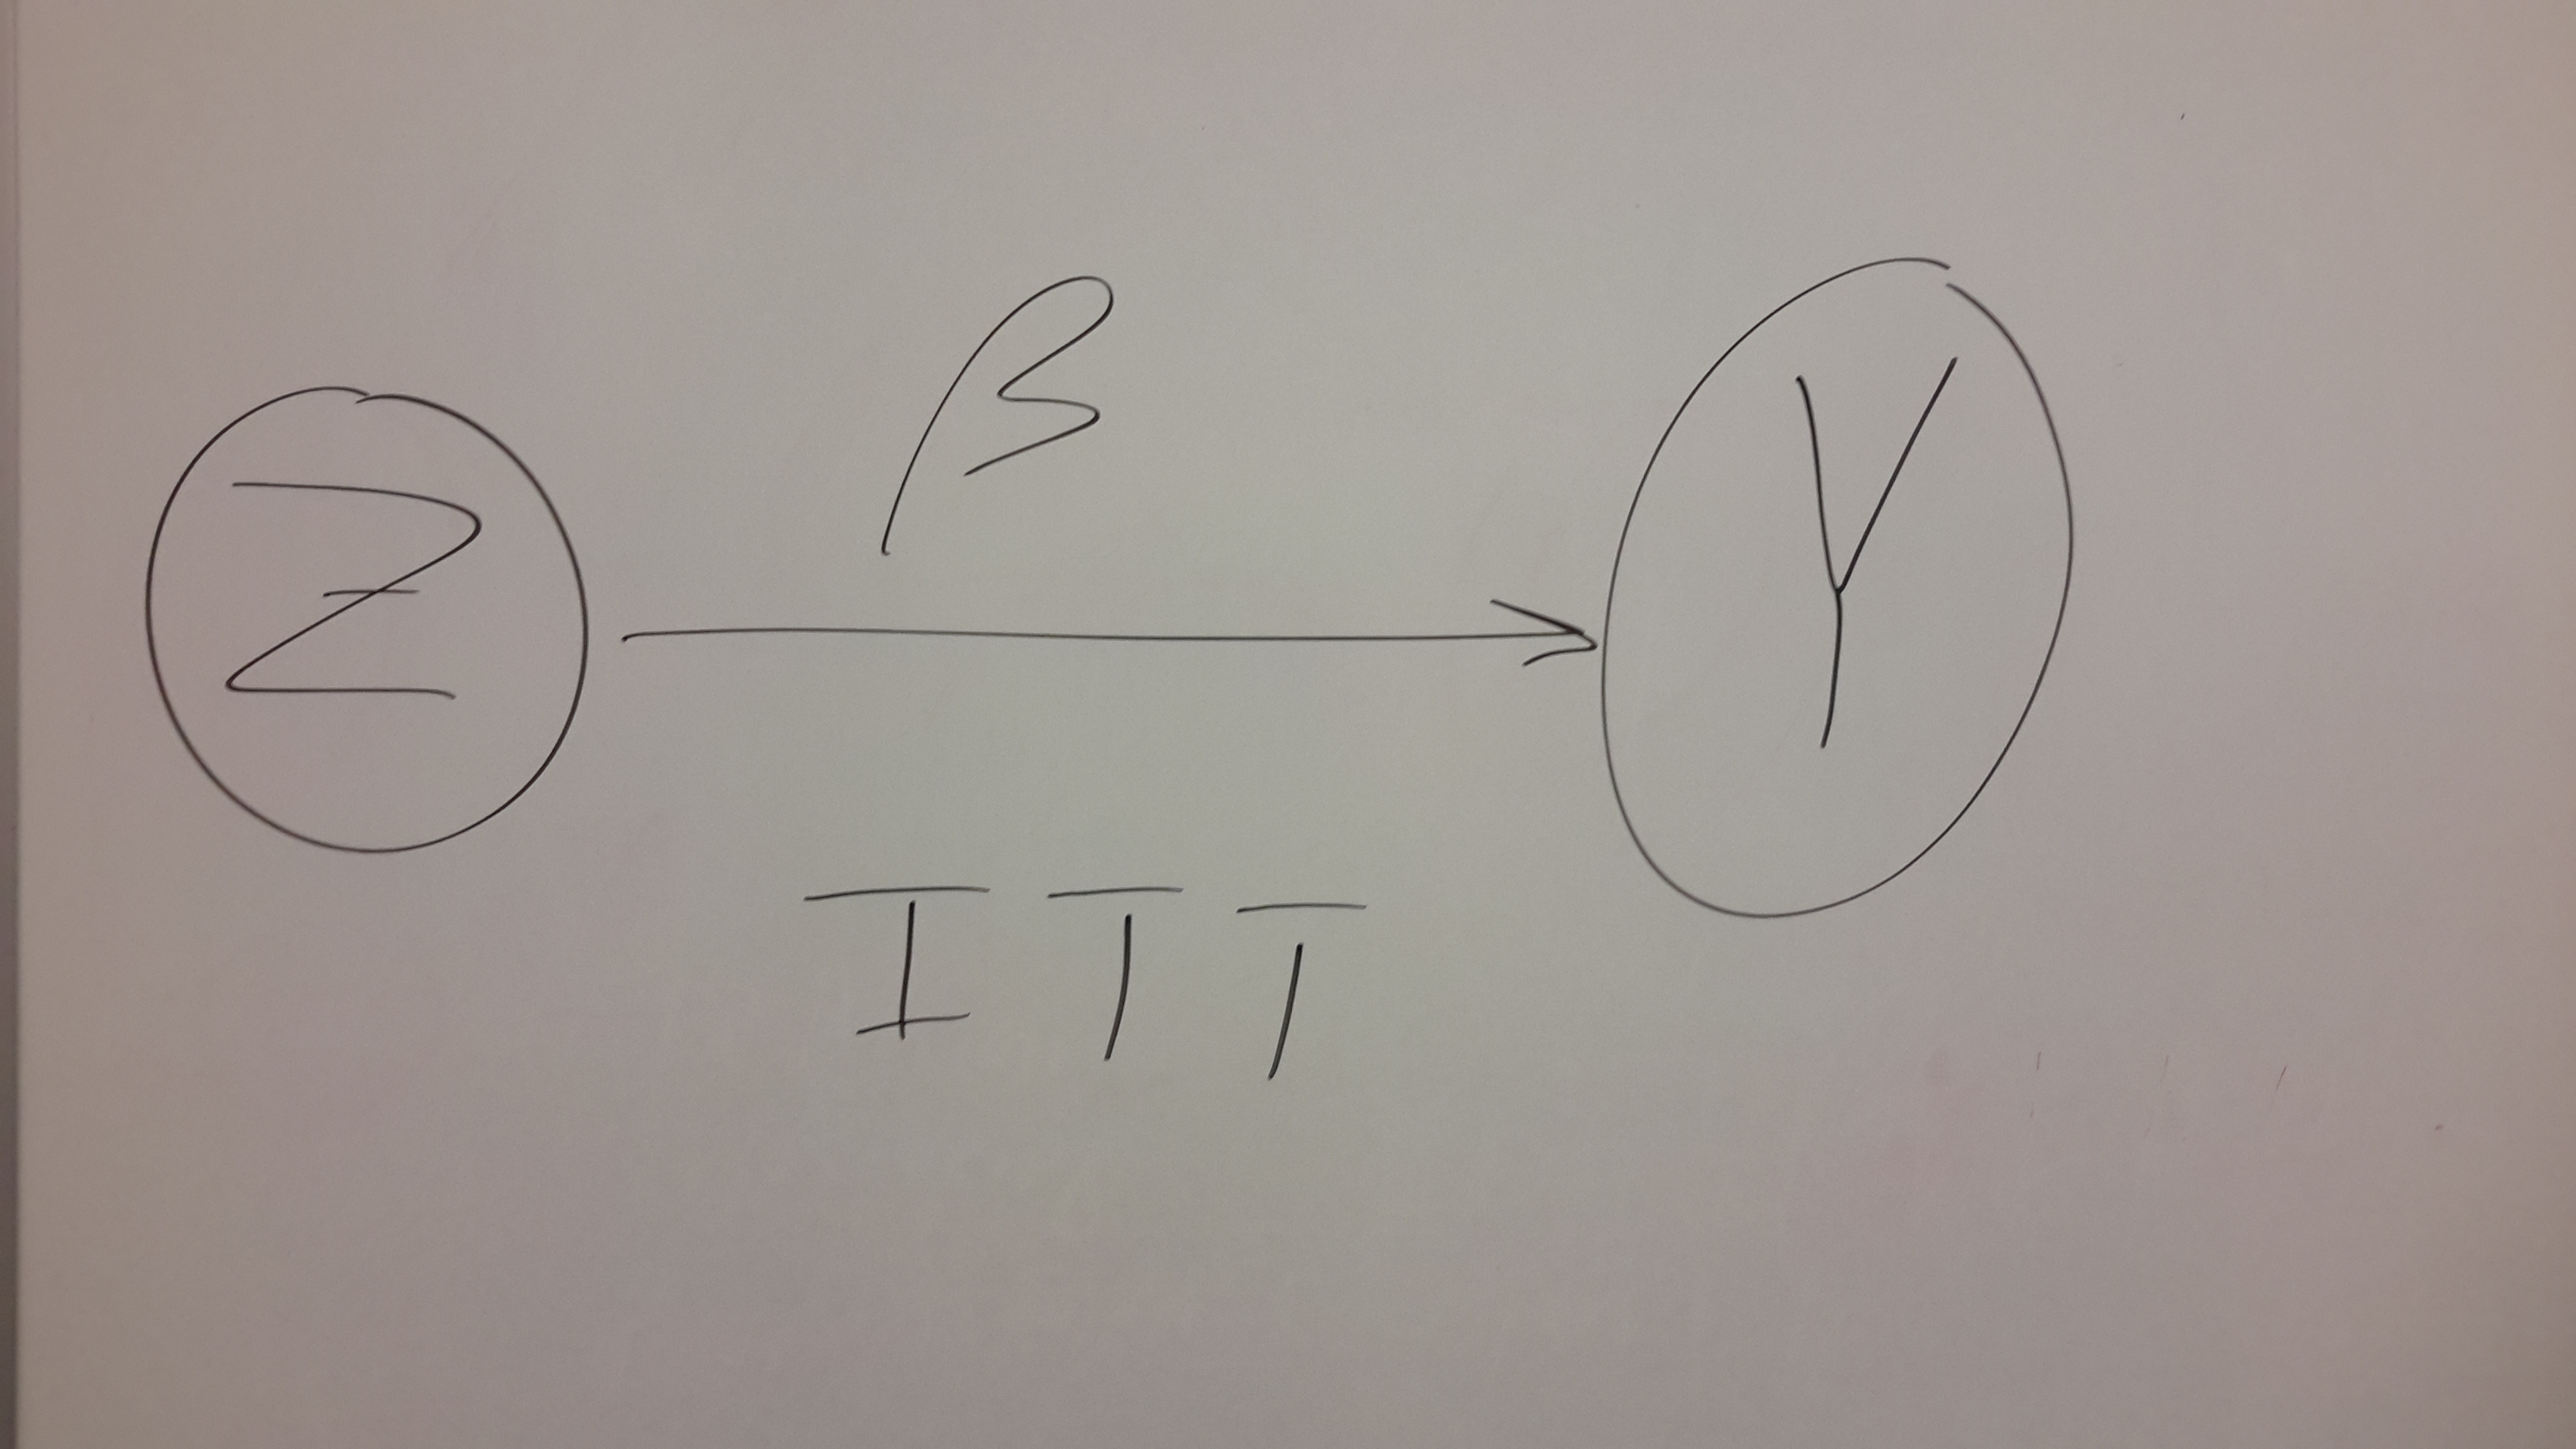 β
Z Y
ITT